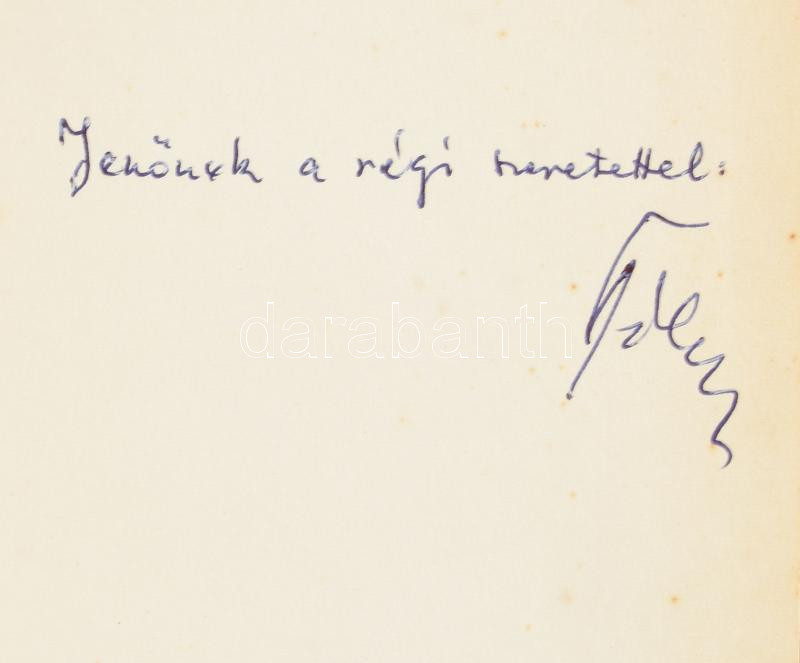 Jenőnek a régi szeretettel:
darabanth